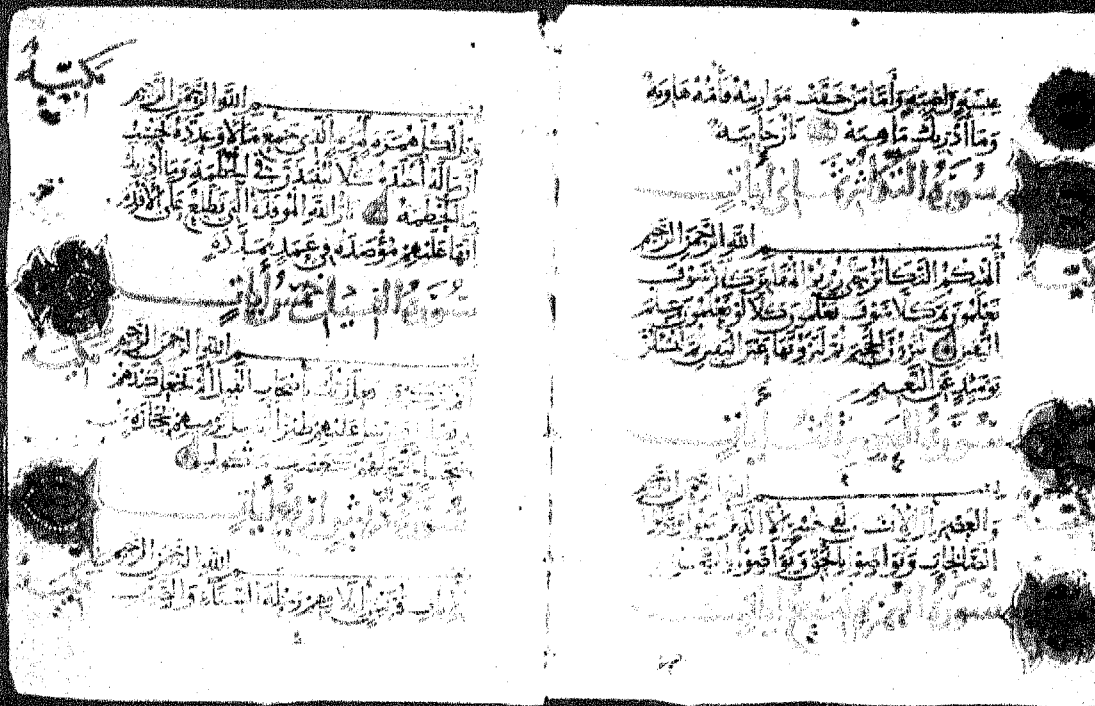 عيشة راضية وأما من خفت موازينه فأمه هاوية
وما أدريك ما هيه نار حامية
سورة التكاثر ثماني آيات
بسم الله الرحمن الرحيم
ألهيكم التكاثر حتى زرتم المقابر كلا سوف
تعلمون ثم كلا سوف تعلمون كلا لو تعلمون علم
اليقين لترون الجحيم ثم لترونها عين اليقين ثم لتسئلن
يومئذ عن النعيم
سورة العصر ثلث آيات
بسم الله الرحمن الرحيم
والعصر إن الانسان لفي خسر إلا الذين آمنوا وعملوا
الصالحات وتواصوا بالحق وتواصوا بالصبر
سورة الهمزة آيات
مكية
بسم الله الرحمن الرحيم
ويل لكل همزة لمزة الذي جمع مالا وعدده يحسب
أن ماله أخلده كلا لينبذن في الحطمة وما أدريك
ما الحطمة نار الله الموقدة التي تطلع على الأفئدة
إنها عليهم مؤصدة في عمد ممددة
سورة الفيل خمس آيات
بسم الله الرحمن الرحيم
ألم تر كيف فعل ربك بأصحاب الفيل ألم يجعل كيدهم
في تضليل وأرسل عليهم طيرا أبابيل ترميهم بحجارة من
سجيل فجعلهم كعصف مأكول
سورة قريش أربع آيات
بسم الله الرحمن الرحيم
لإيلاف قريش إيلافهم رحلة الشتاء والصيف